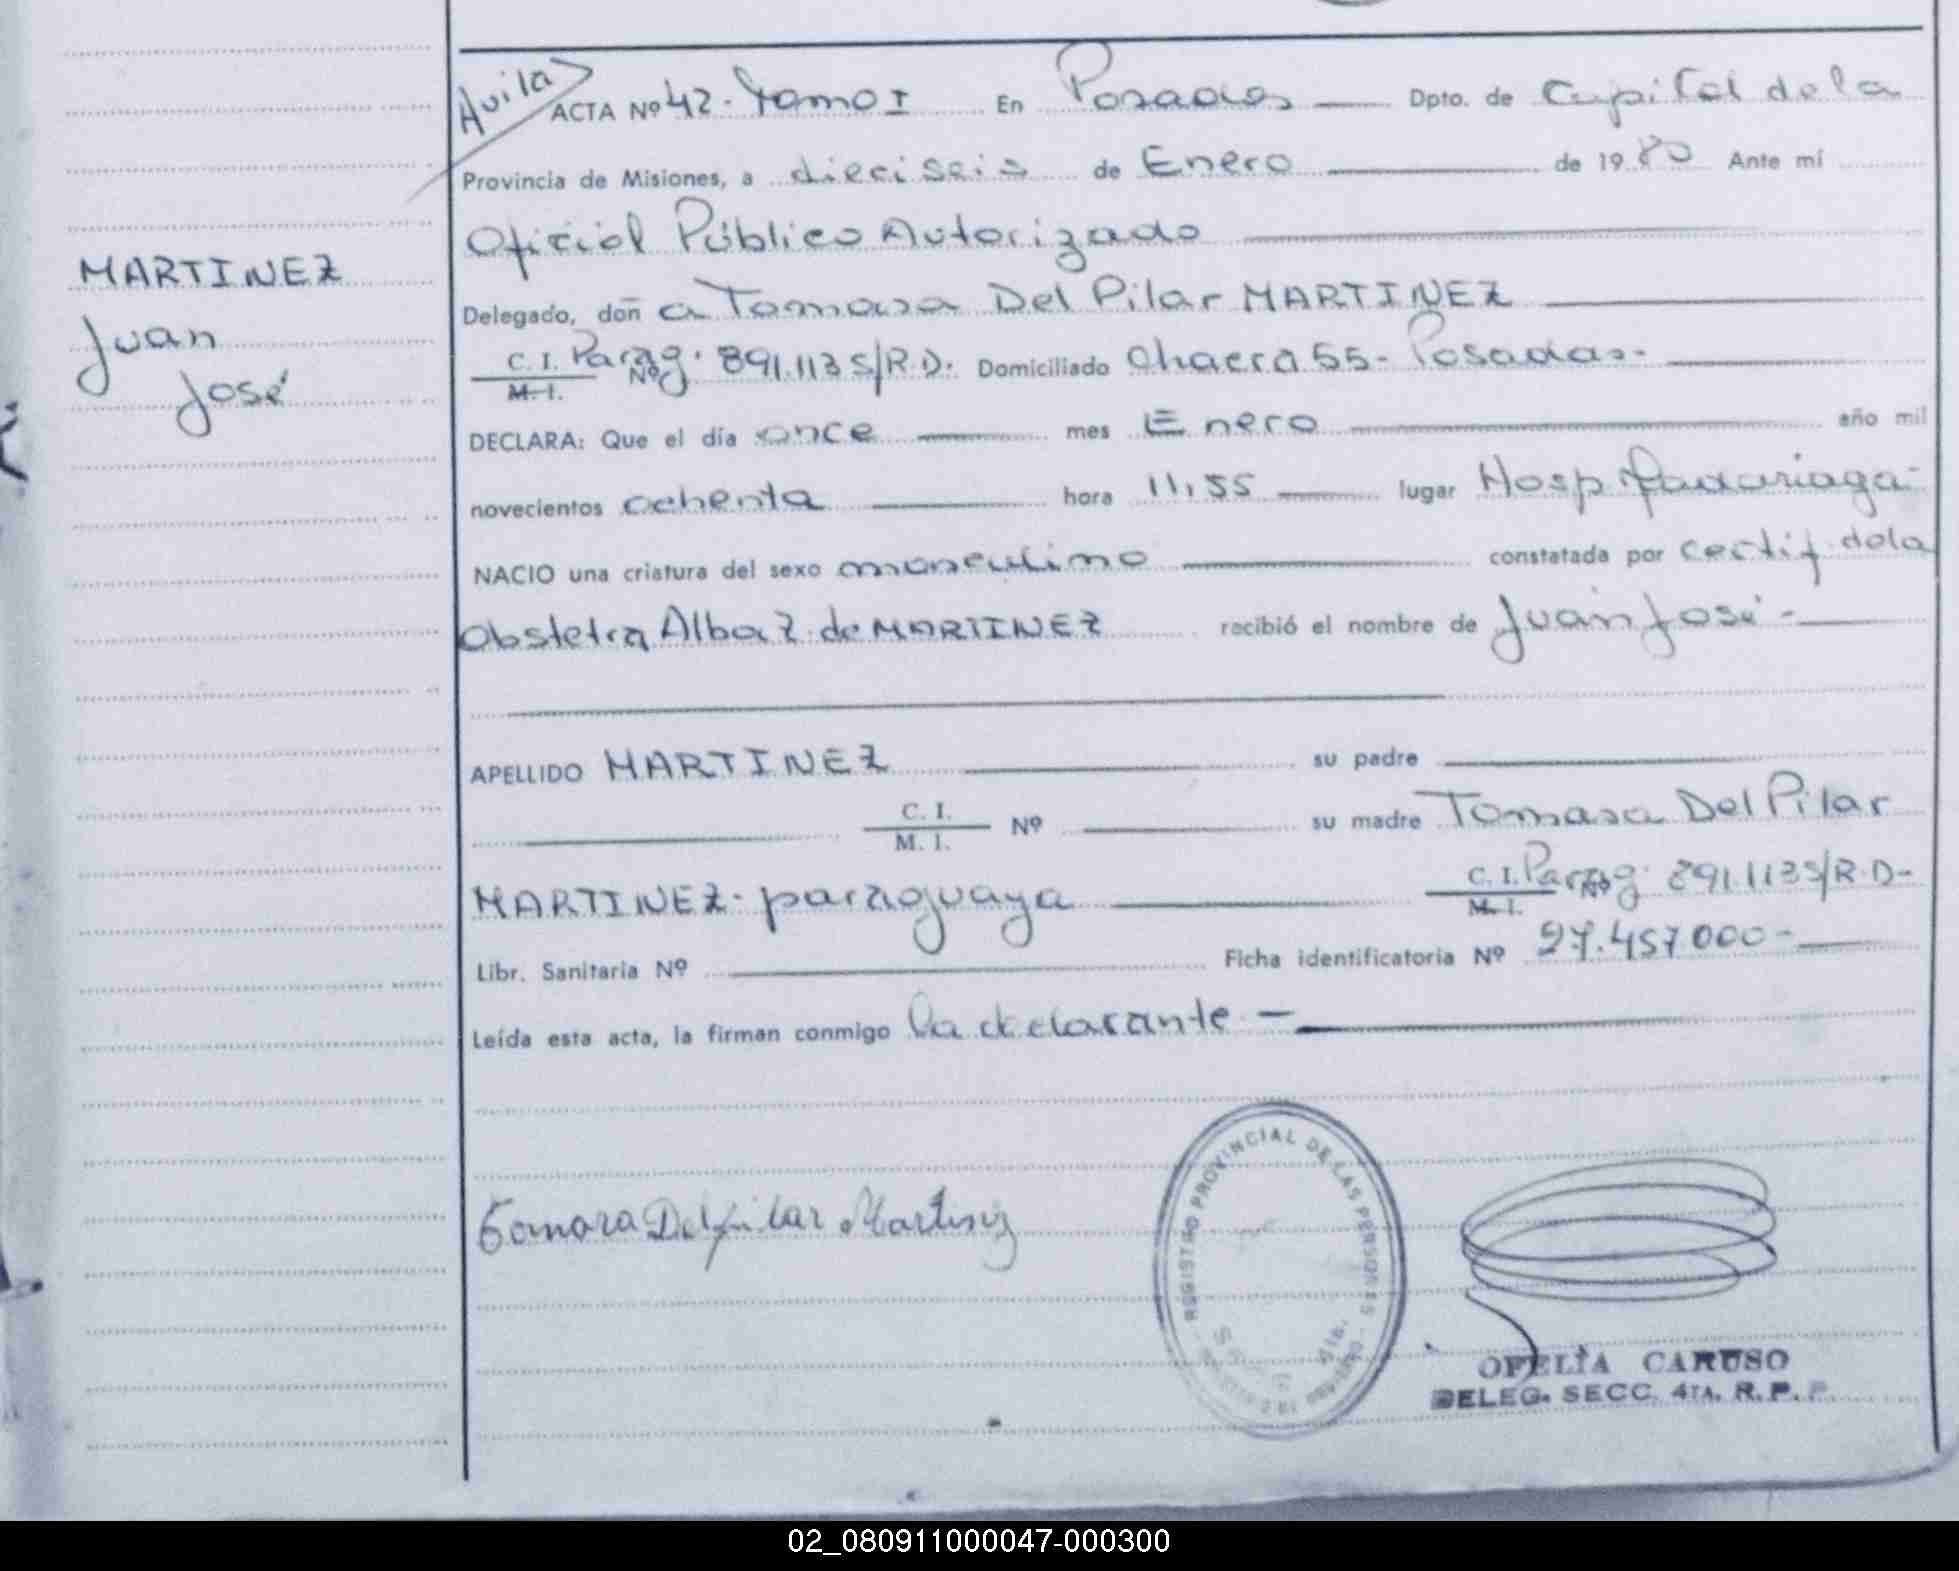 Avila
ACTA Nº 42. Tomo I En Posadas Dpto. de Capital de la
Provincia de Misiones, a dieciseis de Enero de 1980 Ante mí
Oficial Público Autorizado
MARTINEZ
Juan
José
Delegado, doñ a Tomasa Del Pilar MARTINEZ
C. I. Parag. Nº 891.113 S/R.D. Domiciliado Chacra 55 - Posadas -
M. I.
DECLARA: Que el día once mes Enero año mil
novecientos ochenta hora 11,55 lugar Hosp Madariaga -
NACIO una criatura del sexo masculino constatada por certif de la
Obstetra Alba Z. de MARTINEZ recibió el nombre de Juan José -
APELLIDO MARTINEZ su padre
C. I.
M. I. Nº su madre Tomasa Del Pilar
MARTINEZ - paraguaya C. I. Parag. Nº 891.113 S/R.D-
M. I.
Libr. Sanitaria Nº Ficha identificatoria Nº 27.457.000 -
Leída esta acta, la firman conmigo la declarante -
Tomasa Del pilar Martinez
REGISTRO PROVINCIAL DE LAS PERSONAS
OFELIA CARUSO
DELEG. SECC. 4TA. R. P. P.
02_080911000047-000300